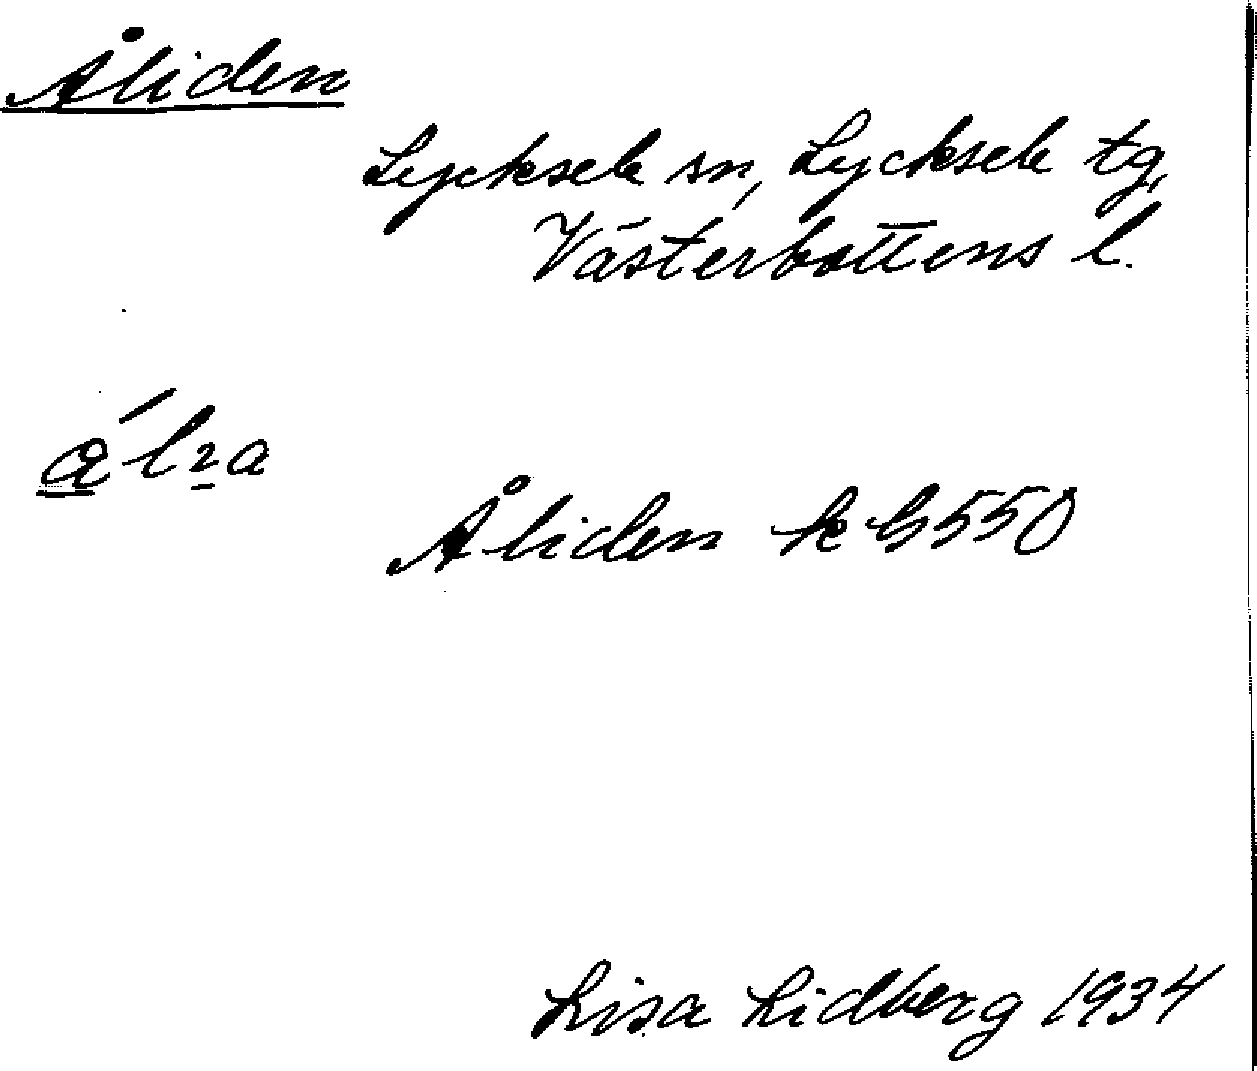 Åliden
Lycksele sn, Lycksele tg,
Västerbottens l.
Åliden kG550
Lisa Lidberg 1934